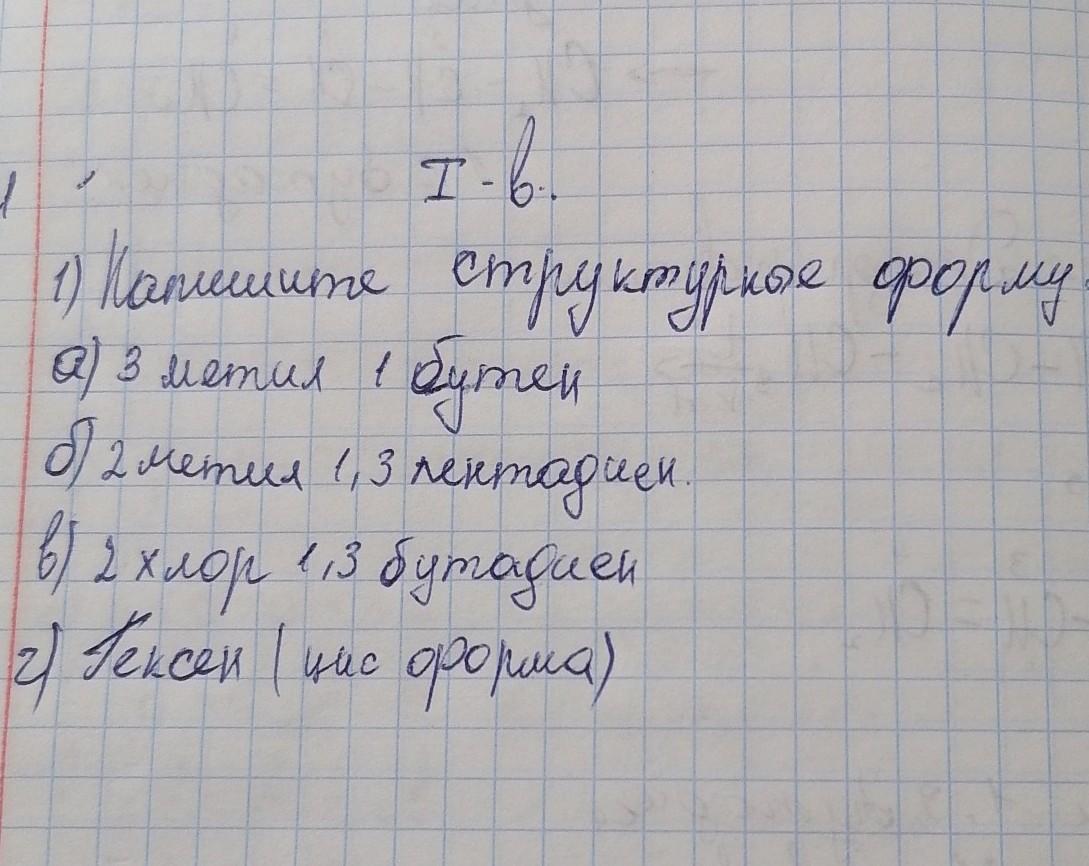 I-в.
1) Напишите структурные форму
а) 3 метил 1 бутен
б) 2 метил 1,3 пентадиен.
в) 2 хлор 1,3 бутадиен
г) Гексен (цис форма)